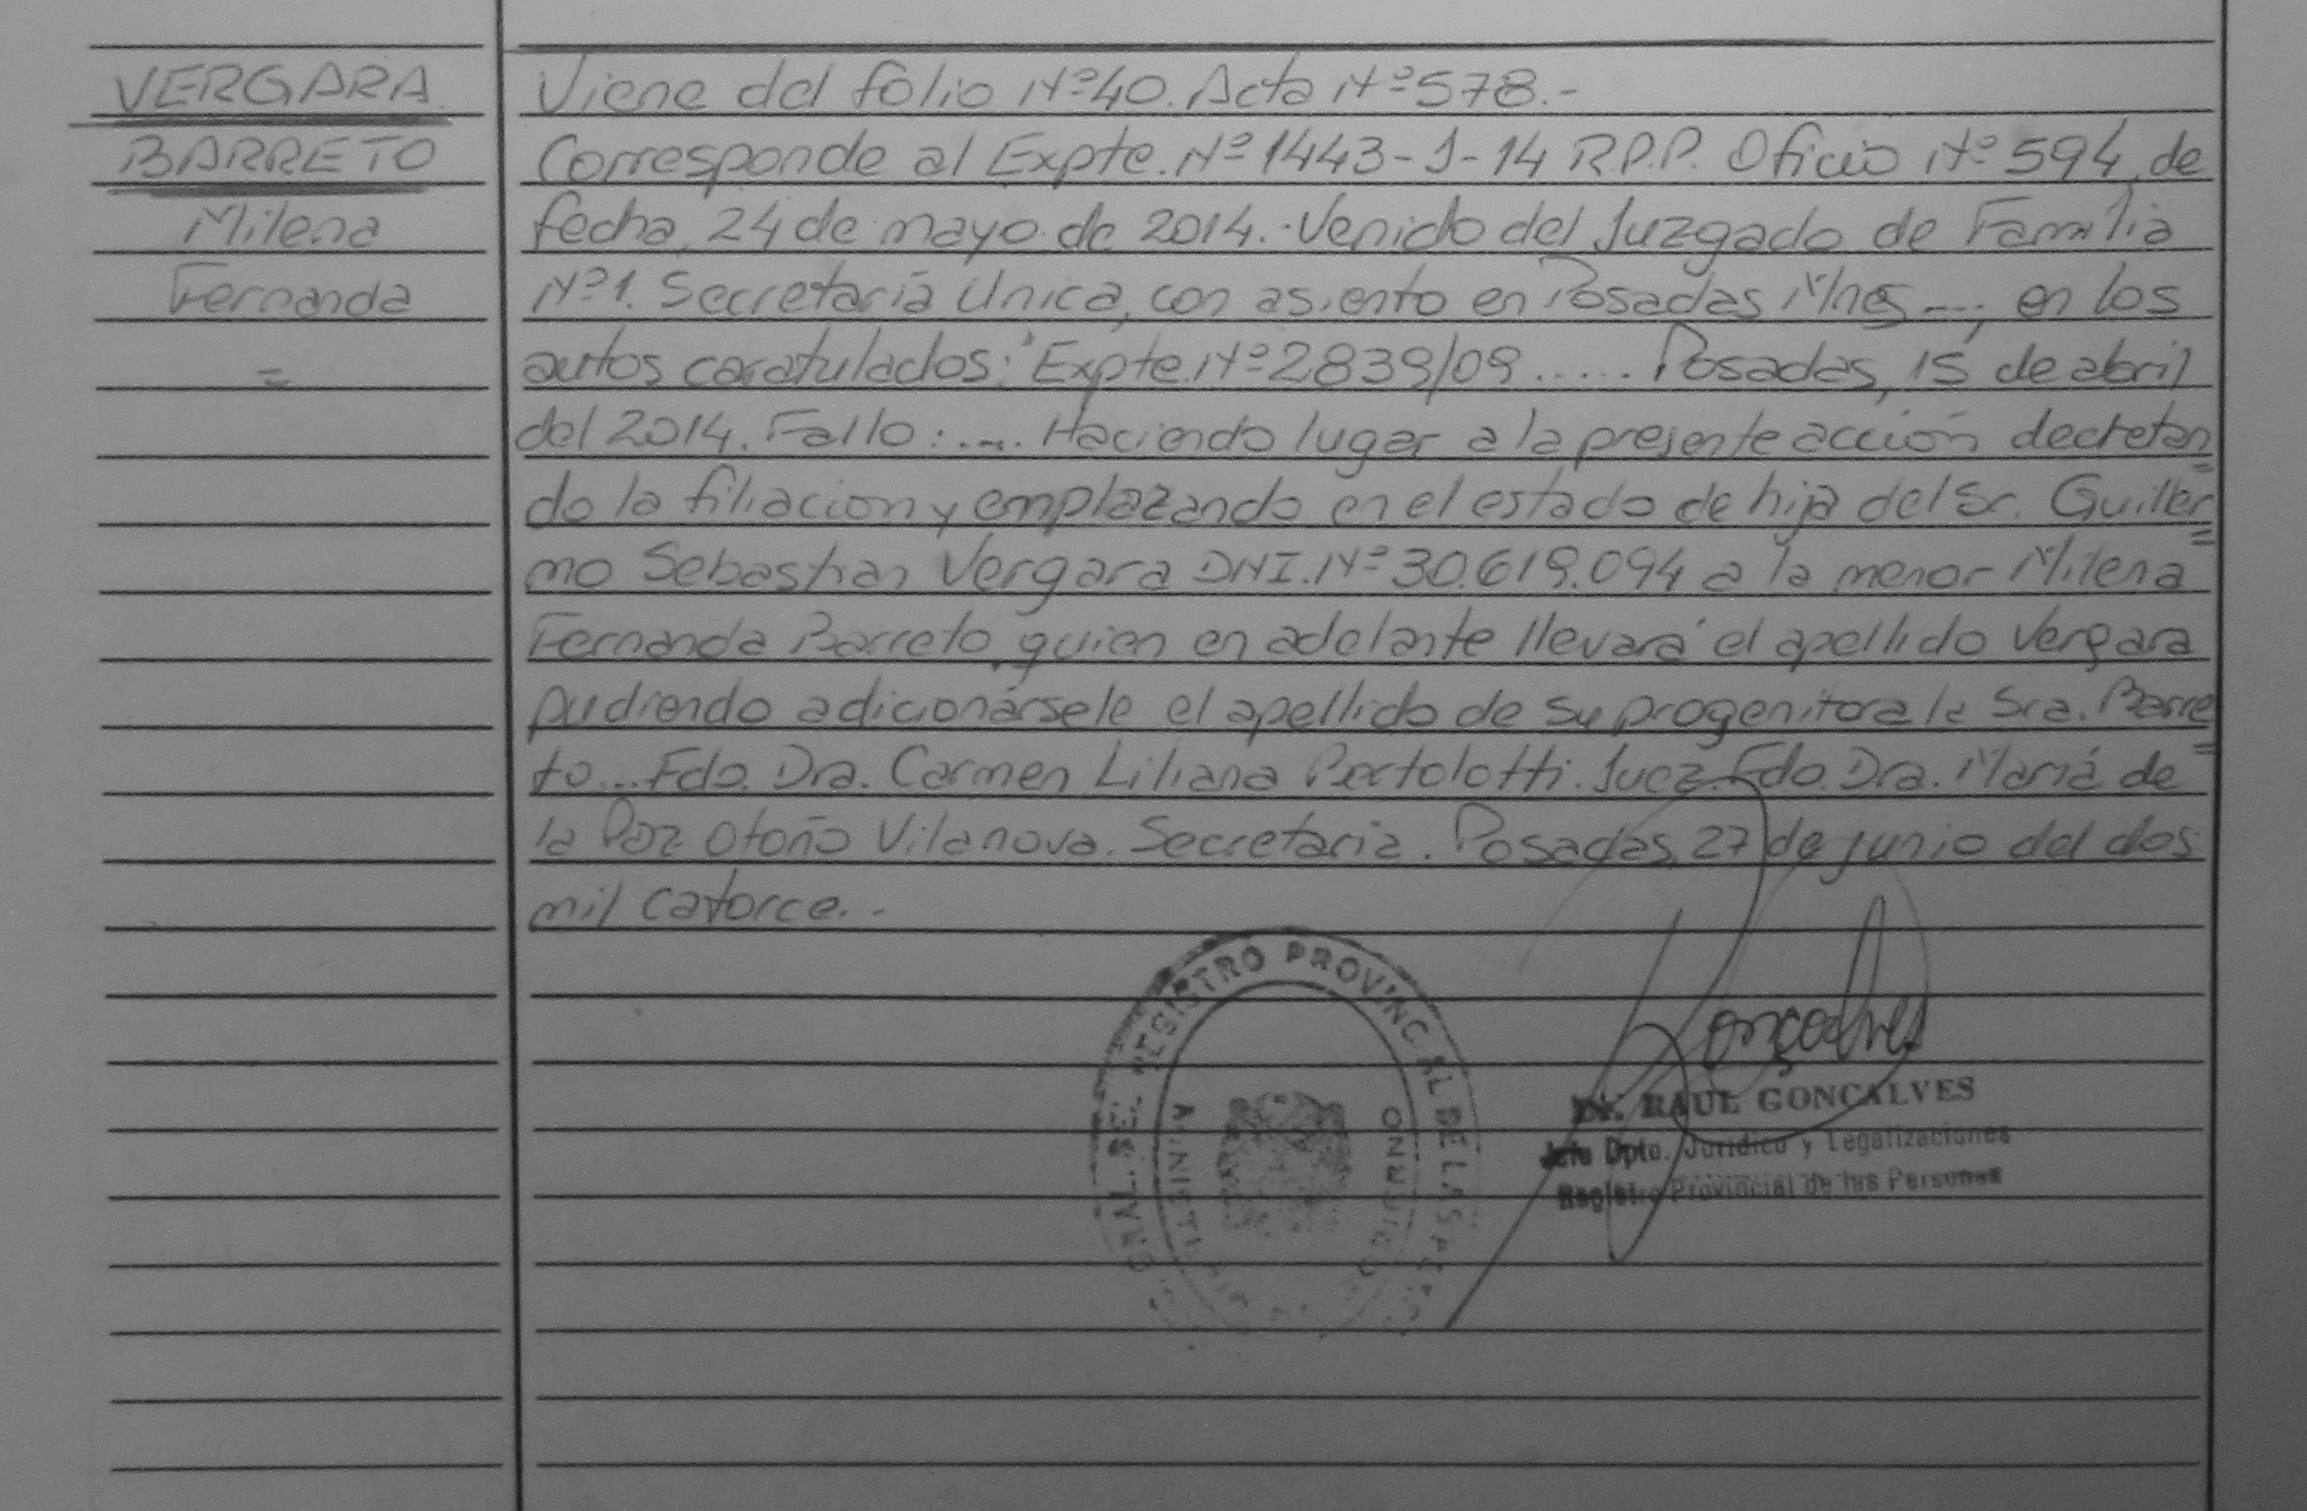 VERGARA
BARRETO
Milena
Fernanda
=
Viene del folio Nº 40. Acta Nº 578.-
Corresponde al Expte. Nº 1443-J-14 R.P.P. Oficio Nº 594, de
fecha, 24 de mayo de 2014.- Venido del Juzgado de Familia
Nº 1. Secretaría Unica, con asiento en Posadas Mnes ...., en los
autos caratulados: "Expte. Nº 2839/09 ..... Posadas, 15 de abril
del 2014. Fallo: .... Haciendo lugar a la presente acción decretan
=
do la filiacion y emplazando en el estado de hija del Sr. Guiller
=
mo Sebastian Vergara DNI. Nº 30.619.094 a la menor Milena
Fernanda Barreto, quien en adelante llevará el apellido Vergara
pudiendo adicionársele el apellido de su progenitora la Sra. Barre
=
to... Fdo. Dra. Carmen Liliana Bertolotti. Juez. Fdo. Dra. Mariá de
la Paz Otoño Vilanova. Secretaria. Posadas, 27 de junio del dos
mil catorce.-
REGISTRO PROVINCIAL DE LAS
Gonçalves
Dr. RAUL GONCALVES
Jefe Dpto. Jurídico y Legalizaciones
Registro Provincial de las Personas